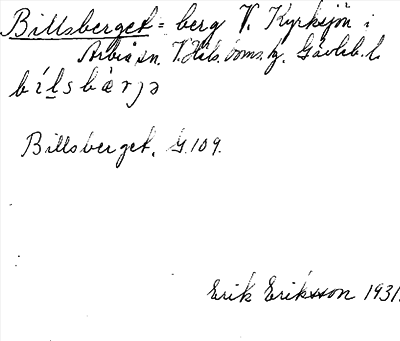 Billsberget = berg V. Kyrksjön i
Arbrå sn. V. Häls. doms. hg. Gävleb. l.
bílsbàrjə
Billsberget. G. 109.
Erik Eriksson 1931.